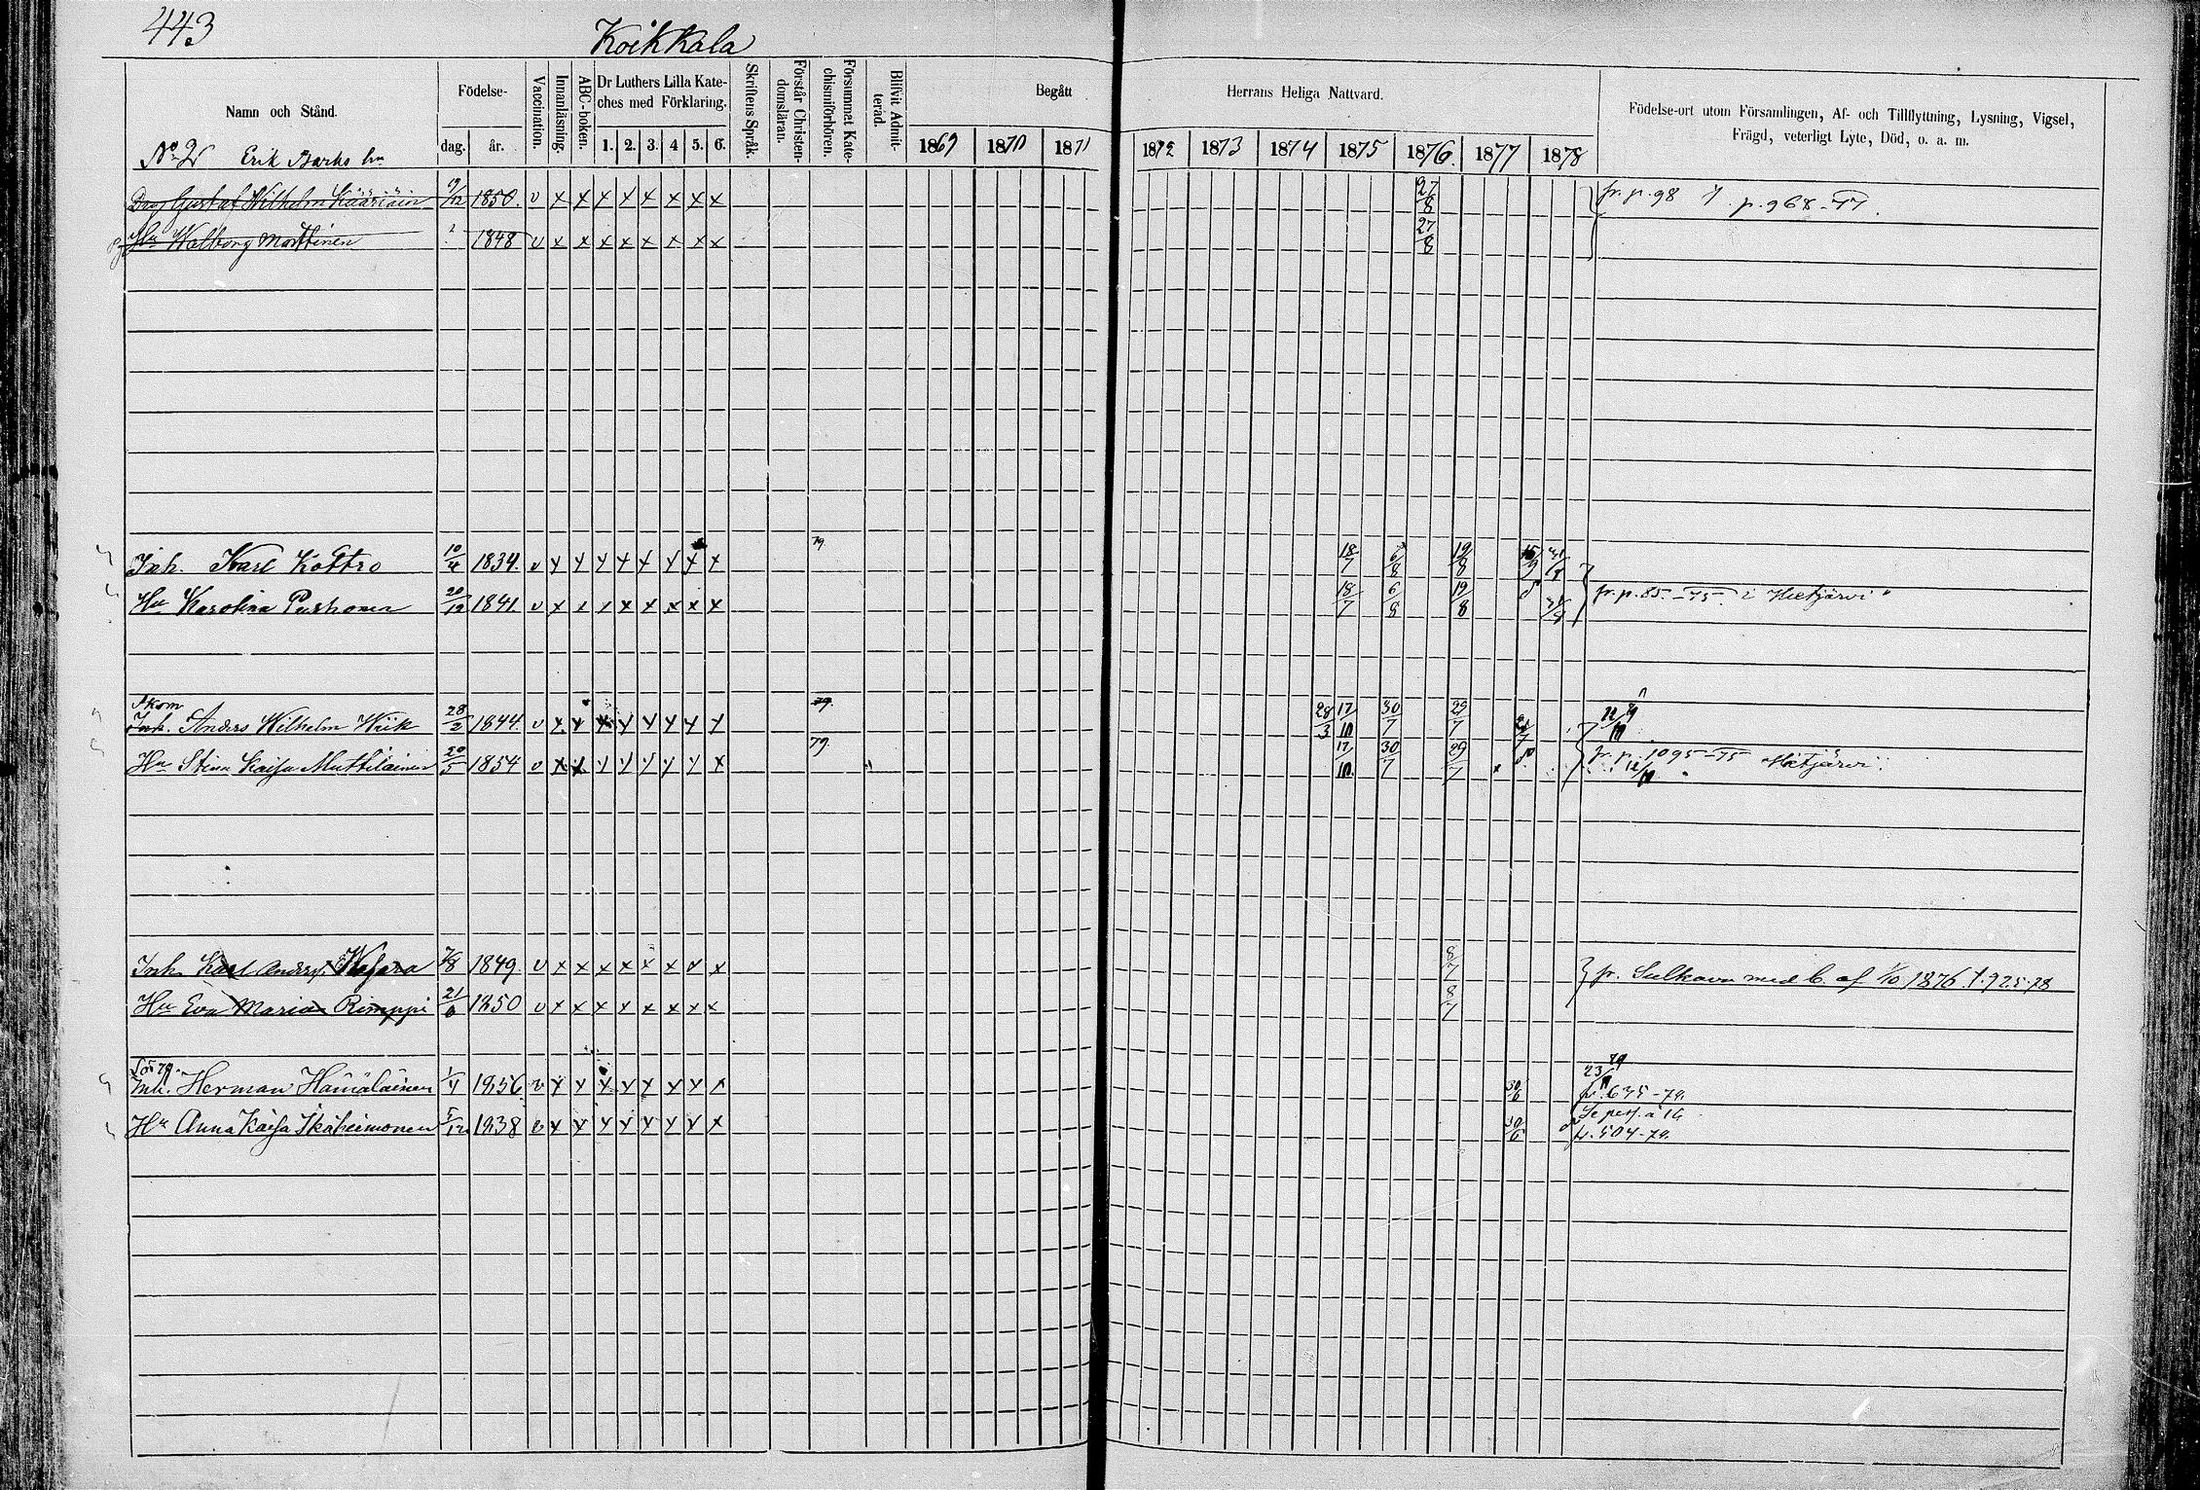 443
Koikkala
Namn och Stånd.
Födelse-
dag. år.
Vaccination.
Innanläsning.
ABC-boken.
Dr Luthers Lilla Kate-
ches med Förklaring.
1. 2. 3. 4 5. 6.
Skriftens Språk.
Förstår Christen-
domsläran.
Försummat Kate-
chismiförhören.
Blifvit Admit-
terad.
Begått Herrans Heliga Nattvard.
1869 1870 1871 1872 1873 1874 1875 1876. 1877 1878
Födelse-ort utom Församlingen, Af- och Tillflyttning, Lysning, Vigsel,
Frägd, veterligt Lyte, Död, o. a. m.
No 2 Erik
Gustaf Wilhelm Kääriäin 19/12 1850. v x x x x x x x x 27/8 fr. p. 98 p. 968-77.
Hu Walborg 1848 v x x x x x x x x 27/8
Inh. Karl Kottro 10/4 1834. v x x x x x x x x 79 18/7 6/8 19/8
Hu Karolina 20/12 1841. v x x x x x x x x 18/7 6/8 19/8 fr. p. 85.-75. i Hietjärvi
Skom
Inh. Anders Wilhelm Wiik 28/2 1844. v x x x x x x x x 79 28/3 17/10 30/7 29/7
Hu Stina Kaisa Muttilainen 20/5 1854 v x x x x x x x x 79. 17/10 30/7 29/7 fr. p. 1095-75 Hietjärvi
Inh. Karl Anders. 7/8 1849. v x x x x x x x x 8/7 fr. Sulkava med b. af 1/10 1876. t. 925-78
Hu Eva Maria Rimppi 21/6 1850 v x x x x x x x x 8/7
Inh. Herman Hämäläinen 1/4 1856. v x x x x x x x x 30/6 fr. 635-79.
Hu Anna Kaisa 5/12 1838 v x x x x x x x x 30/6 fr. 504-79.